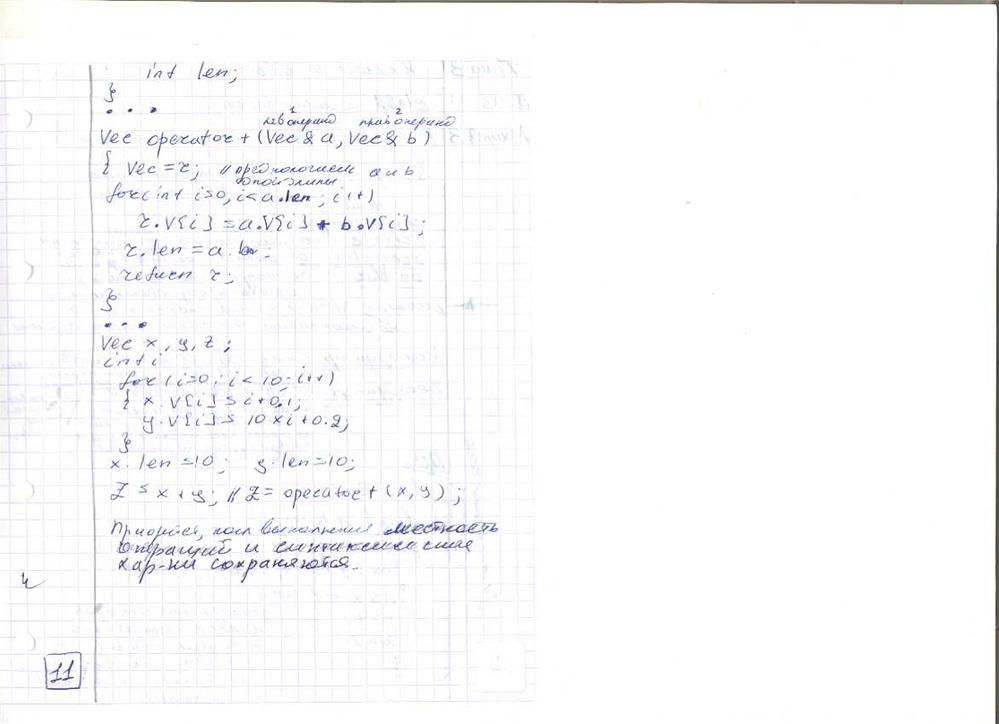 int len;
}
• • •
1 2
лев операнд прав операнд
Vec operator + (Vec & a, Vec & b)
{ Vec = r; // предпологаем a и b
одной длины
for (int i=0, i<a.len; i++)
r.V[i] = a.V[i] + b.V[i];
r.len = a.len;
return r;
}
• • •
Vec x, y, z;
int i
for (i=0; i < 10; i++)
{ x.V[i] = i+0,1;
y.V[i] = 10 x i + 0.2;
}
x.len = 10; y.len = 10;
Z = x + y; // Z = operator + (x, y);
Приоритет, посл выполнения местность
операций и синтаксические
хар-ки сохраняются.
11